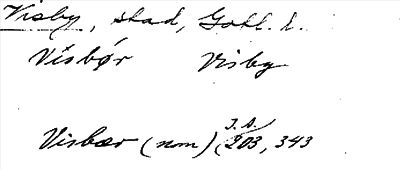 Visby, stad, Gotl. l.
Visbør Visby
J. A.
Visbær (nom) (203, 343